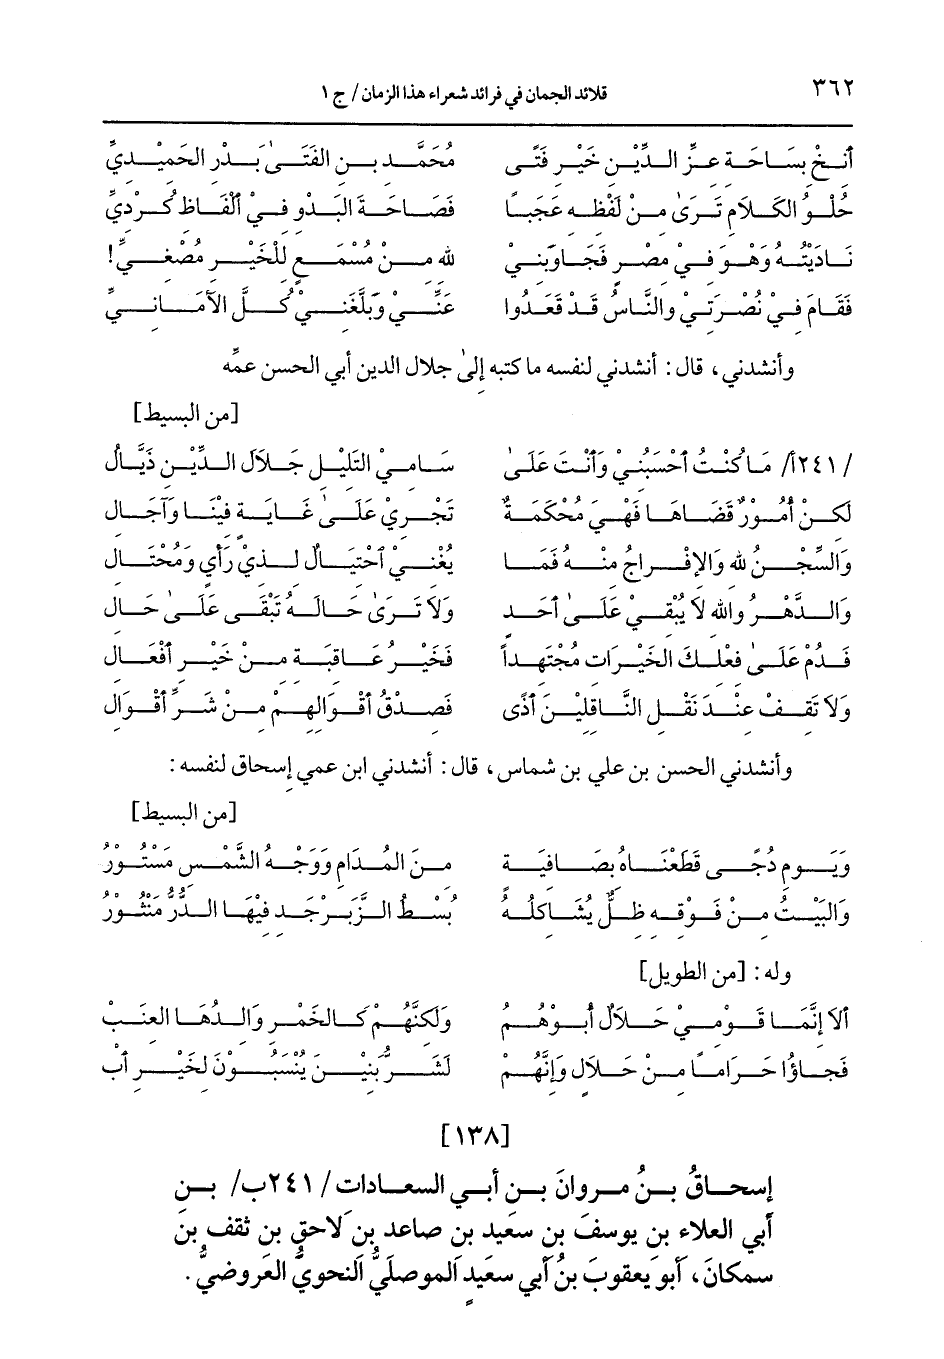 ٣٦٢ قلائد الجمان في فرائد شعراء هذا الزمان / ج ١
أَنِخْ بِسَاحَةِ عِزِّ الدِّيْنِ خَيْرِ فَتًى مُحَمَّدِ بِنِ الفَتَىٰ بَدْرِ الحَمِيْدِيِّ
حُلْوُ الكَلاَمِ تَرَىٰ مِنْ لَفْظِهِ عَجَباً فَصَاحَةَ البَدْوِ فِيْ أَلْفَاظِ كُرْدِيِّ
نَادَيْتُهُ وَهْوَ فِيْ مِصْرٍ فَجَاوَبَنِيْ لله مِنْ مُسْمَعٍ لِلْخَيْرِ مُصْغِيِّ!
فَقَامَ فِيْ نُصْرَتِيْ وَالنَّاسُ قَدْ قَعَدُوا عَنِّيْ وَبَلَّغَنِيْ كُلَّ الأَمَانِيِّ
وأنشدني، قال: أنشدني لنفسه ما كتبه إلىٰ جلال الدين أبي الحسن عمِّه
[من البسيط]
/٢٤١أ/ مَا كُنْتُ أَحْسَبُنِيْ وَأَنْتَ عَلَىٰ سَامِيْ التَّلِيْلِ جَلاَلَ الدِّيْنِ ذَيَّالِ
لكِنْ أُمُورٌ قَضَاهَا فَهْيَ مُحْكَمَةٌ تَجْرِي عَلَىٰ غَايَةٍ فِيْنَا وَآجَالِ
وَالسِّجْنُ لله وَالإِفْرَاجُ مِنْهُ فَمَا يُغْنِيْ احْتِيَالٌ لِذِيْ رَأْيٍ وَمُحْتَالِ
وَالدَّهْرُ وَالله لاَ يُبْقِيْ عَلَىٰ أَحَدٍ وَلاَ تَرَىٰ حَالَةً تَبْقَى عَلَىٰ حَالِ
فَدُمْ عَلَىٰ فِعْلِكَ الخَيْرَاتِ مُجْتَهِداً فَخَيْرُ عَاقِبَةٍ مِنْ خَيْرِ أَفْعَالِ
وَلاَ تَقِفْ عِنْدَ نَقْلِ النَّاقِلِيْنَ أَذًى فَصِدْقُ أَقْوَالِهِمْ مِنْ شَرِّ أَقْوَالِ
وأنشدني الحسن بن علي بن شماس، قال: أنشدني ابن عمي إسحاق لنفسه:
[من البسيط]
وَيَوْمِ دُجًى قَطَعْنَاهُ بِصَافِيَةٍ مِنَ المُدَامِ وَوَجْهُ الشَّمْسِ مَسْتُوْرُ
وَالبَيْتُ مِنْ فَوْقِهِ ظِلٌّ يُشَاكِلُهُ بُسْطُ الزَّبَرْجَدِ فِيْهَا الدُّرُّ مَنْثُوْرُ
وله: [من الطويل]
أَلاَ إِنَّمَا قَوْمِيْ حَلاَلٌ أَبُوْهُمُ وَلَكِنَّهُمْ كَالخَمْرِ وَالِدُهَا العِنَبْ
فَجَاؤُا حَرَاماً مِنْ حَلاَلٍ وَإِنَّهُمْ لَشَرُّ بَنِيْنٍ يُنْسَبُوْنَ لِخَيْرِ أَبْ
[١٣٨]
إسحاقُ بنُ مروانَ بنِ أبي السعادات /٢٤١ب/ بن
أبي العلاءِ بنِ يوسفَ بنِ سعيدِ بنِ صاعدِ بنِ لاحقِ بنِ ثقفِ بنِ
سمكانَ، أبو يعقوبَ بنُ أبي سعيدٍ الموصليُّ النحويُّ العَروضيُّ.